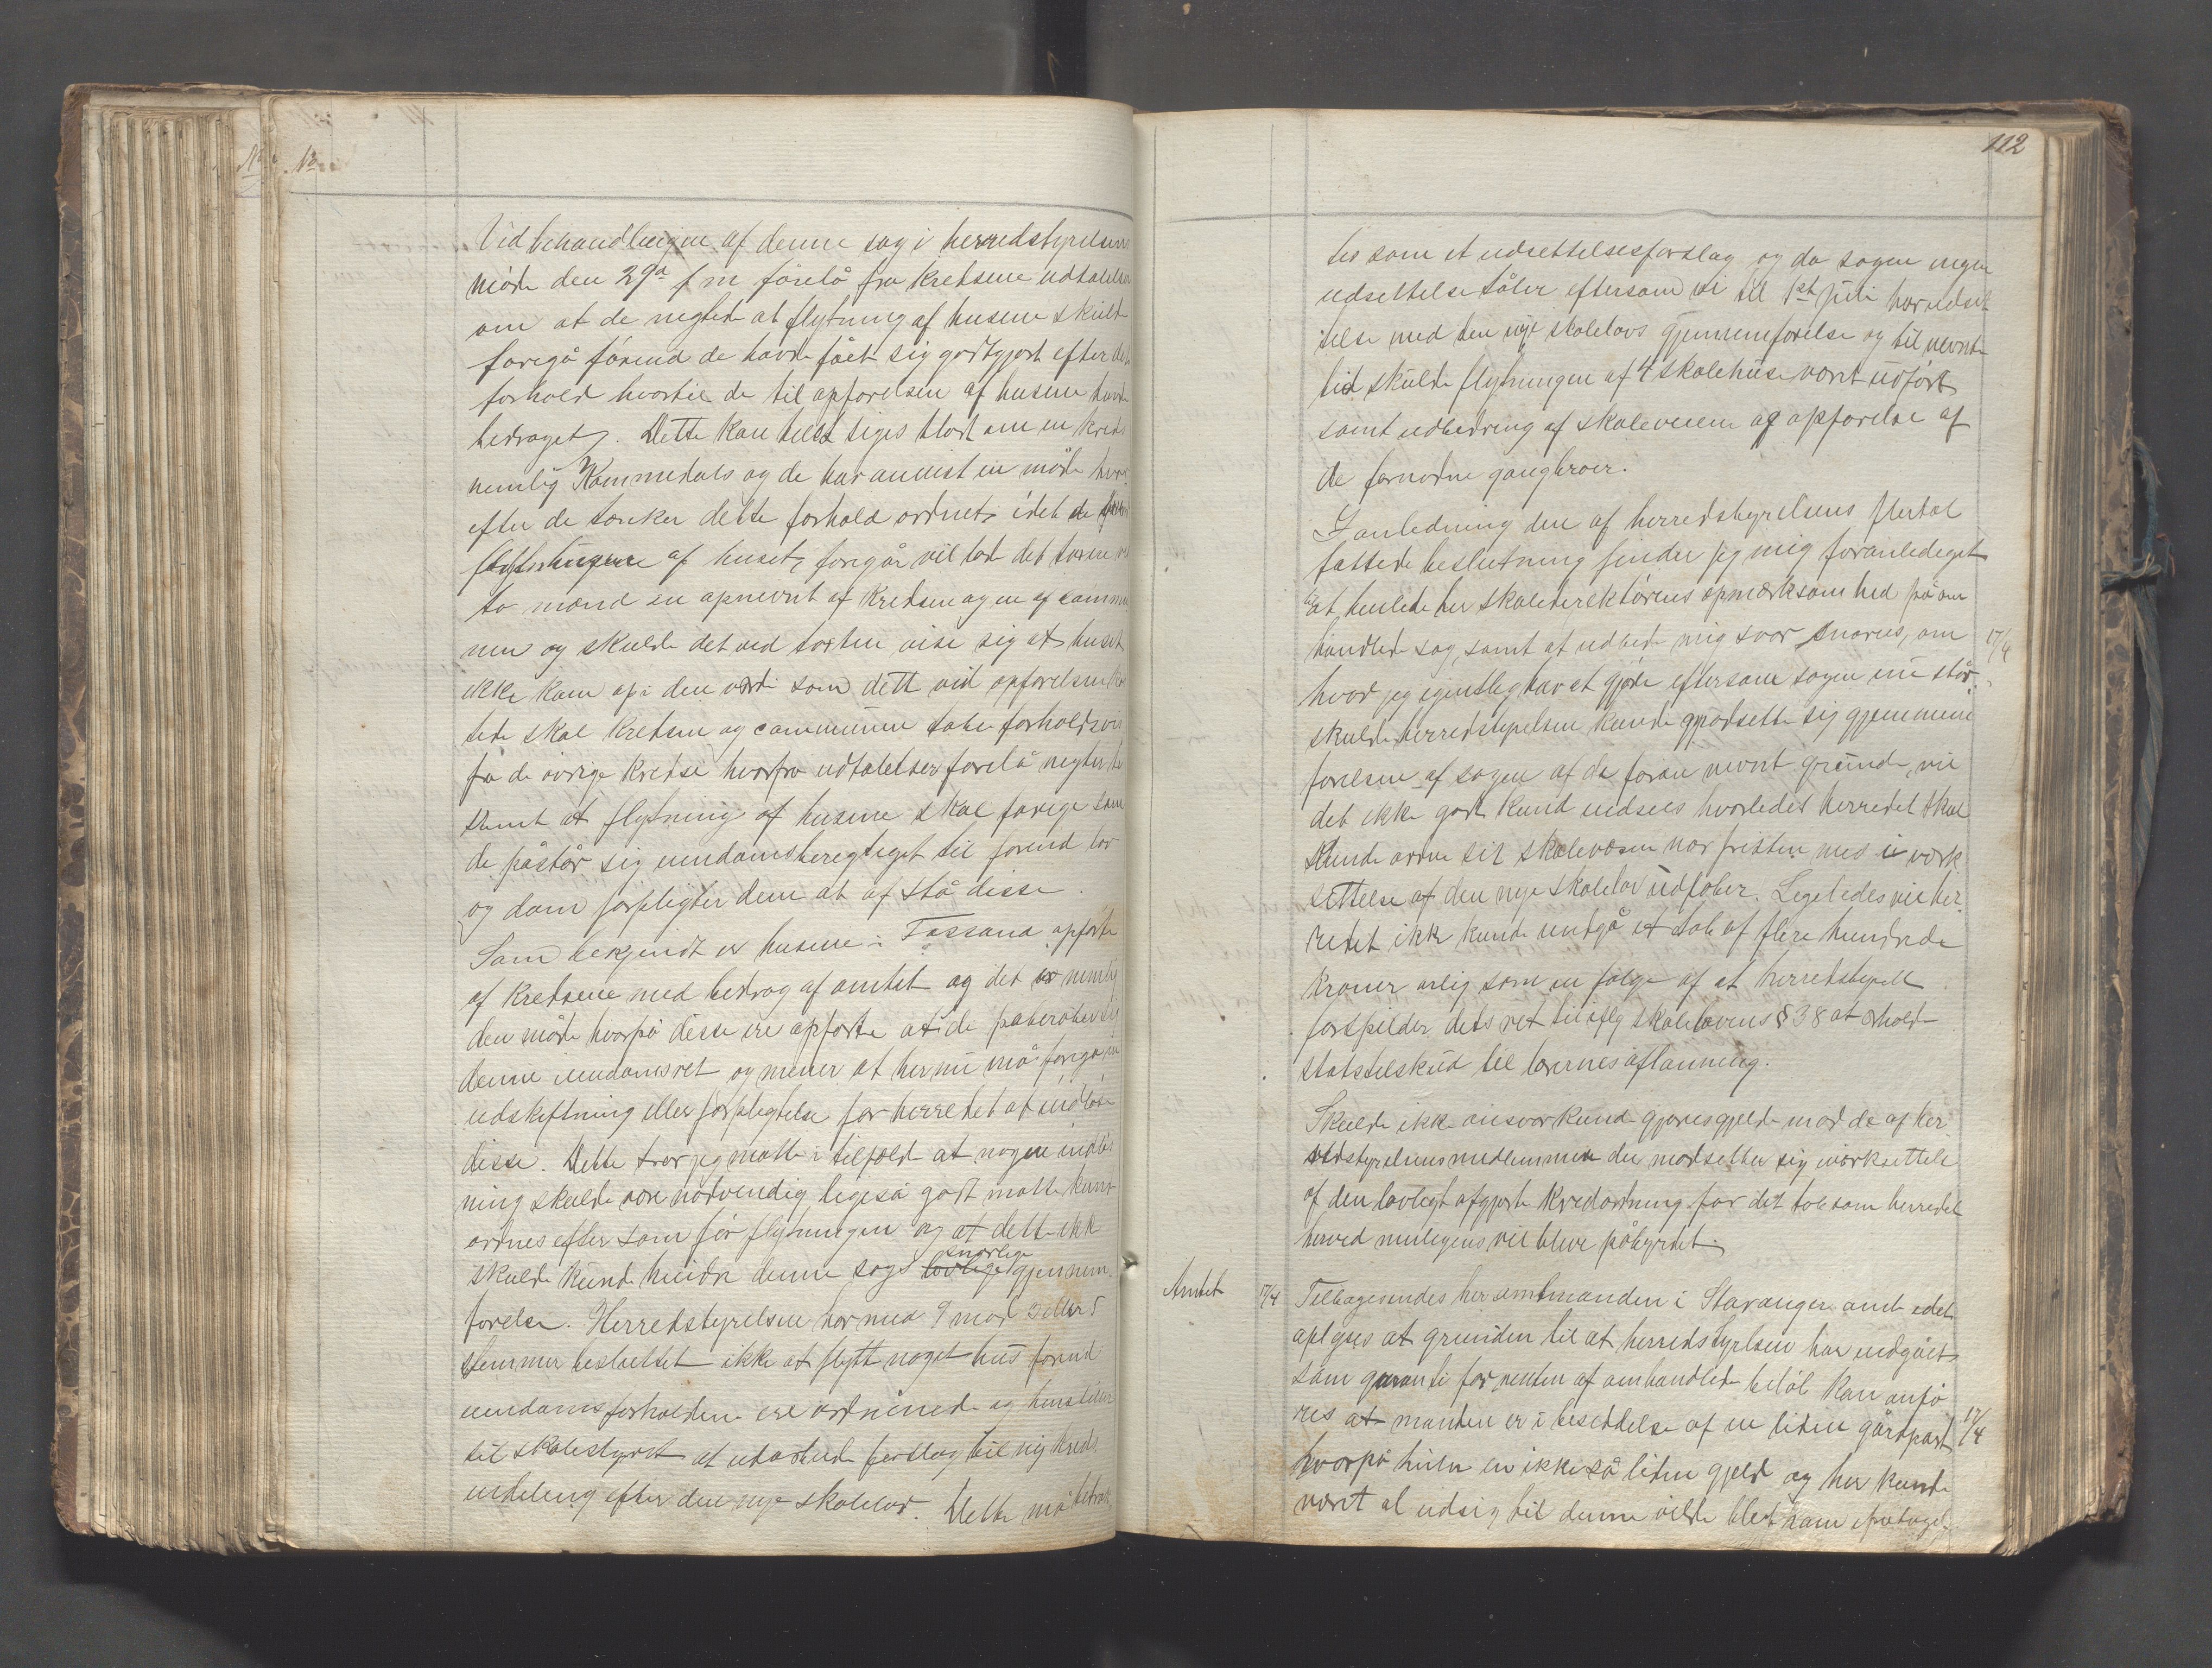 Ved behandlingen af denne sag i herredstyrelsens
møde den 29de f m forelå fra kredsene udtalelser
om at de negtede at flytning af husene skulde
foregå førend de havde fået sig godtgjort efter det
forhold hvortil de til opførelsen af husene havde
bedraget. Dette kan siges blot om en kreds
nemlig Kommedals og de har anvist en måde hvor
efter de tænker dette forhold ordnet, idet de
flytningen af huset, foregår vil lade det taxere ved
to mænd en opnevnt af Kredsen og en af commu
nen og skulde det ved taxten vise sig at huset
ikke kom op i den værdi som dett ved opførelsen
skal kredsen og communen tabe forholdsvis
fra de øvrige kredse hvorfra udtalelser forelå negtes be
stemt at flytning af husene skal foregå som
de påstår sig eiendomsberegtiget til førend lov
og dom forpligter dem at afstå disse.
Som bekjendt er husene i Fossand opførte
af Kredsene med bedrag af amtet og det er nemlig
den måde hvorpå disse ere opførte at de paberober sig
denne eiendomsret og mener at her nu må foregå en
udskiftning eller forpligtelse for herredet at indløse
disse. Dette tror jeg måtte i tilfeld at nogen indløs
ning skulde være nødvendig ligeså godt måtte kunne
ordnes efter som før flytningen og at dette ikke
skulde kunde hindre denne sags
snarlige
lovlige gjennem
førelse. Herredstyrelsen har med 9 mod 3 eller 5
stemmer besluttet ikke at flytt noget hus førend
eiendomsforholdene ere ordnede og henstiller
til skolestyret at udarbeide forslag til ny kreds
indeling efter den nye skolelov. Dette må betrak
112
tes som et udsettelsesforslag og da sagen ingen
udsettelse tåler eftersom vi til 1st Juli har udset
telse med den nye skolelovs gjennemførelse og til nevnte
tid skulde flytningen af 4 skolehuse vært udført
samt udbedring af skoleveiene og opførelse af
de fornødne gangbroer.
I anledning den af herredstyrelsens flertal
fattede beslutning finder jeg mig foranlediget
til
at henlede hr skoledirektørens opmærksomhed på om
handlede sag, samt at udbede mig svar snarest, om
17/4
hvad jeg egentlig har at gjøre eftersom sagen nu står.
skulde herredstyrelsen kunde modsette sig gjennem
førelsen af sagen af de foran nevnt grunde, vil
det ikke godt kund indsees hvorledes herredet skal
kunde ordne sit skolevæsen nar fristen med i verk
settelse af den nye skolelov udløber. Legeledes vil her
redet ikke kunde undgå et tab af flere hundrede
kroner årlig som en følge af at herredstyrelse
forspilder dets ret til iflg skolelovens § 38 at erhold
statstilskud til lærernes aflønning.
Skulde ikke ansvar kunde gjøres gjeldende mod de af her
redstyrelsens medlemmer der modsetter sig iverksettelse
af den lovlegt afgjorte kredsordning for det tab som herredet
herved muligens vil blive påbyrdet.
Amtet
17/4
Tilbagesendes hr amtmanden i Stavanger amt idet
oplyses at grunden til at herredstyrelsen har indgået
som garanti for renten af omhandlede beløb kan anfø
res at manden er i besiddelse af en liden gårdpart
17/4
hvorpå hviler en ikke så liden gjeld og her kunde
vært al udsigt til denne vilde blevet ham fratagen